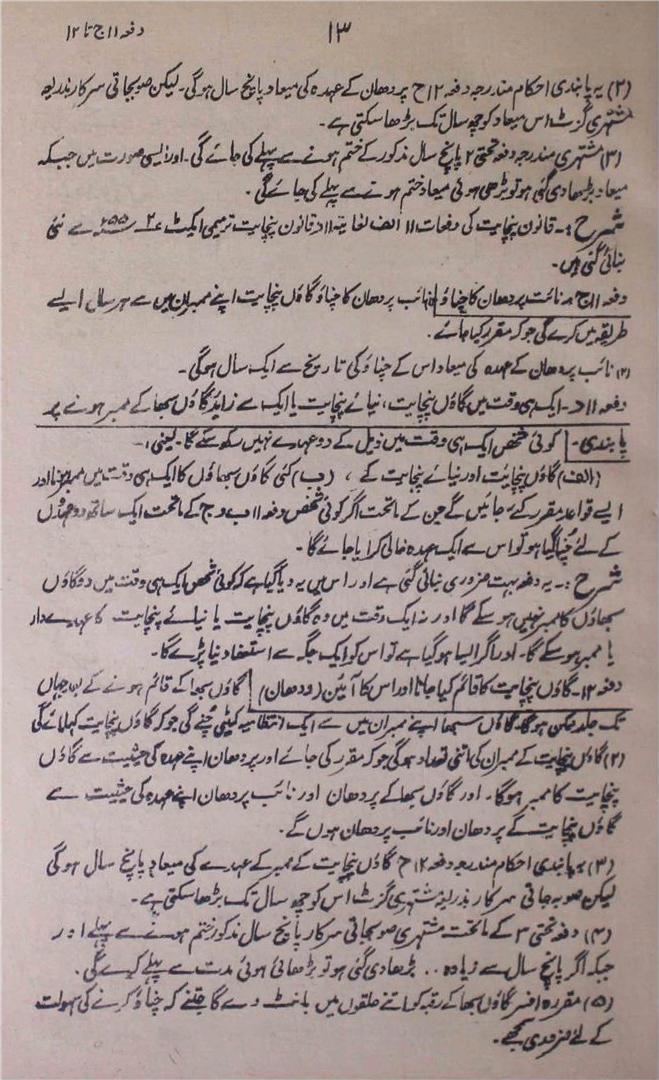 ۱۳ دفعہ ۱۱ج تا ۱۲
(۲) بہ پابندی احکام مندرجہ دفعہ ۱۲ح پردھان کے عہدہ کی میعاد پانچ سال ہوگی۔ لیکن صوبجاتی سرکار بذریعہ
مشتہری گزٹ اس میعاد کو چھ سال تک بڑھا سکتی ہے۔
(۳) مشتہری مندرجہ دفعہ تحتی ۲ پانچ سال مذکور کے ختم ہونے سے پہلے کی جائے گی۔ اور ایسی صورت میں جبکہ
میعاد بڑھا دی گئی ہو تو بڑھی ہوئی میعاد ختم ہونے سے پہلے کی جائے گی۔
شرح :۔ قانون پنچایت کی دفعات ۱۱ الف لغایتہ ۱۱د قانون پنچایت ترمیمی ایکٹ ۲ ۱۹۵۵ء سے نئی
بنائی گئی ہیں۔
دفعہ ۱۱ج ۔ نائب پردھان کا چناؤ نائب پردھان کا چناؤ گاؤں پنچایت اپنے ممبران میں سے ہر سال ایسے
طریقہ میں کرے گی جو کہ مقرر کیا جائے۔
(۲) نائب پردھان کے عہدہ کی میعاد اس کے چناؤ کی تاریخ سے ایک سال ہوگی۔
دفعہ ۱۱د۔ ایک ہی وقت میں گاؤں پنچایت، نیائے پنچایت یا ایک سے زائد گاؤں سبھا کے ممبر ہونے پر
پابندی۔ کوئی شخص ایک ہی وقت میں ذیل کے دو عہدے نہیں رکھ سکے گا۔ یعنی :۔
(الف) گاؤں پنچایت اور نیائے پنچایت کے ، (ب) کئی گاؤں سبھاؤں کا ایک ہی وقت میں ممبر ہونا اور
ایسے قواعد مقرر کئے جائیں گے جن کے ماتحت اگر کوئی شخص دفعہ ۱۱ ب و ج کے ماتحت ایک ساتھ دو عہدوں
کے لئے چُنا گیا ہو تو اس سے ایک عہدہ خالی کرایا جائے گا۔
شرح :۔ یہ دفعہ بہت ضروری بنائی گئی ہے اور اس میں یہ دیا گیا ہے کہ کوئی شخص ایک ہی وقت میں دو گاؤں
سبھاؤں کا ممبر نہیں ہو سکے گا اور نہ ایک وقت میں وہ گاؤں پنچایت یا نیائے پنچایت کا عہدے دار
یا ممبر ہو سکے گا۔ اور اگر ایسا ہو گیا ہے تو اس کو ایک جگہ سے استعفا دینا پڑے گا۔
دفعہ ۱۲۔ گاؤں پنچایت کا قائم کیا جانا اور اس کا آئین (ودھان) گاؤں سبھا کے قائم ہونے کے بعد جہاں
تک جلد ممکن ہو گا۔ گاؤں سبھا اپنے ممبران میں سے ایک انتظامیہ کمیٹی چنے گی جو کہ گاؤں پنچایت کہلائے گی
(۲) گاؤں پنچایت کے ممبران کی اتنی تعداد ہوگی جو کہ مقرر کی جائے اور پردھان اپنے عہدہ کی حیثیت سے گاؤں
پنچایت کا ممبر ہوگا۔ اور گاؤں سبھا کے پردھان اور نائب پردھان اپنے عہدہ کی حیثیت سے
گاؤں پنچایت کے پردھان اور نائب پردھان ہوں گے۔
(۳) بہ پابندی احکام مندرجہ دفعہ ۱۲ح گاؤں پنچایت کے ممبر کے عہدے کی میعاد پانچ سال ہوگی
لیکن صوبہ جاتی سرکار بذریعہ مشتہری گزٹ اس کو چھ سال تک بڑھا سکتی ہے۔
(۴) دفعہ تحتی ۳ کے ماتحت مشتہری صوبجاتی سرکار پانچ سال مذکور ختم ہونے سے پہلے اور
جبکہ اگر پانچ سال سے زیادہ .. بڑھا دی گئی ہو تو بڑھائی ہوئی مدت سے پہلے کرے گی۔
(۵) مقررہ افسر گاؤں سبھا کے رقبہ کو اتنے حلقوں میں بانٹ دے گا جتنے کہ چناؤ کرنے کی سہولت
کے لئے ضروری سمجھے۔